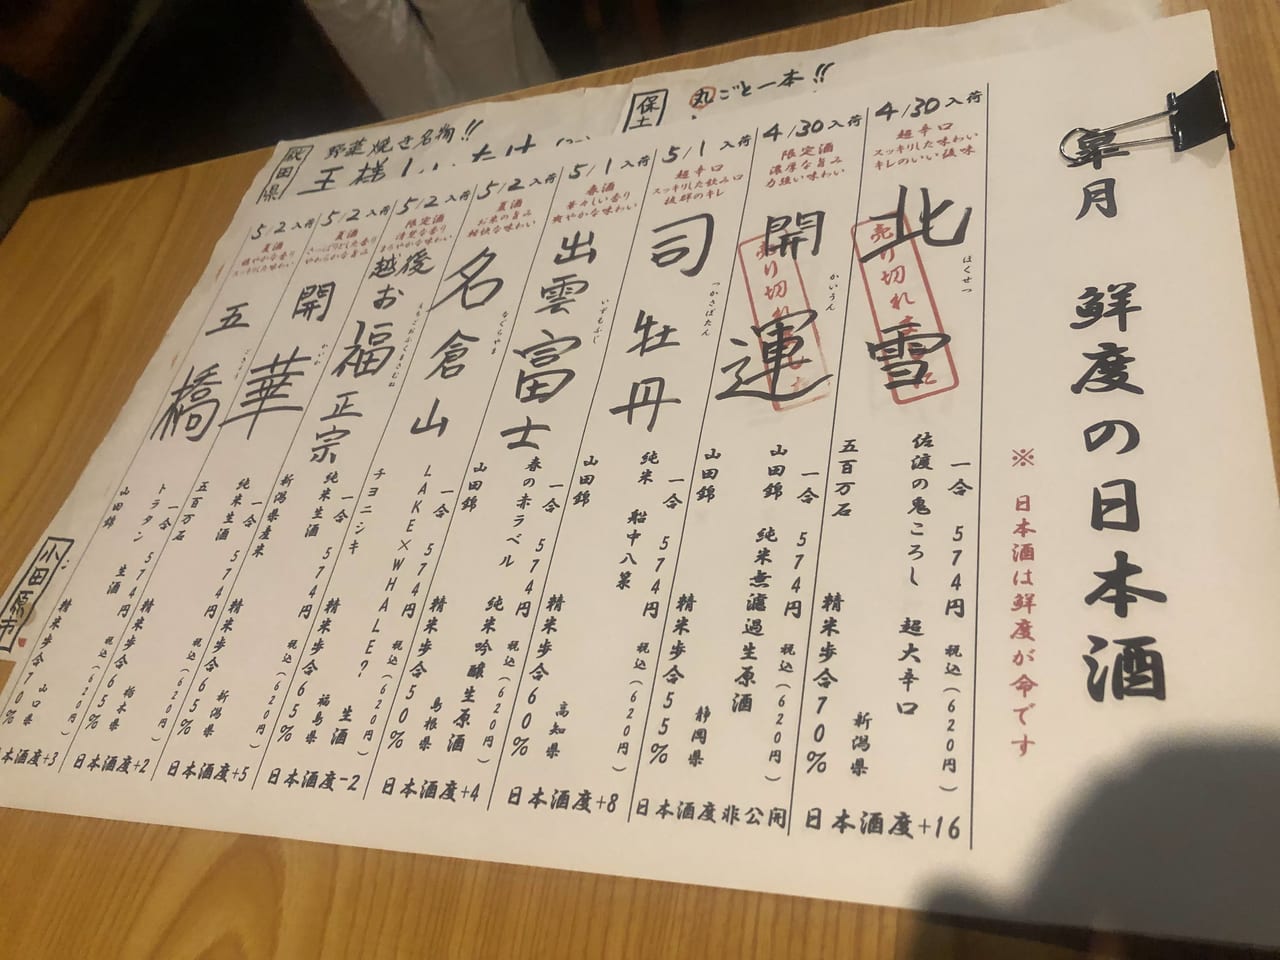 皐月 鮮度の日本酒
※ 日本酒は鮮度が命です
4/30入荷
超辛口
スッキリした味わい
キレのいい後味
北雪
ほくせつ
売り切れ
一合 574円 税込(620円)
佐渡の鬼ころし 超大辛口
五百万石 精米歩合70% 新潟県
日本酒度+16
4/30入荷
限定酒
濃厚な旨み
力強い味わい
開運
かいうん
売り切れ
一合 574円 税込(620円)
山田錦 純米無濾過生原酒
山田錦 精米歩合55% 静岡県
日本酒度非公開
5/1入荷
超辛口
スッキリした飲み口
抜群のキレ
司牡丹
つかさぼたん
一合 574円 税込(620円)
純米 船中八策
山田錦 精米歩合60% 高知県
日本酒度+8
5/1入荷
春酒
華々しい香り
爽やかな味わい
出雲富士
いずもふじ
一合 574円 税込(620円)
春の赤ラベル 純米吟醸生原酒
山田錦 精米歩合50% 島根県
日本酒度+4
5/2入荷
夏酒
お米の旨み
軽快な味わい
名倉山
なぐらやま
一合 574円 税込(620円)
LAKE×WHALE? 生酒
チヨニシキ 精米歩合65% 福島県
日本酒度-2
5/2入荷
限定酒
清楚な香り
まろやかな味わい
越後お福正宗
えちごおふくまさむね
一合 574円 税込(620円)
純米生酒
新潟県産米 精米歩合65% 新潟県
日本酒度+5
5/2入荷
夏酒
さっぱりとした香り
やわらかな旨み
開華
かいか
一合 574円 税込(620円)
純米生酒
五百万石 精米歩合65% 栃木県
日本酒度+2
5/2入荷
夏酒
穏やかな香り
スッキリした味わい
五橋
ごきょう
一合 574円 税込(620円)
トラタン 生酒
山田錦 精米歩合70% 山口県
本酒度+3
保土
丸ごと一本!!
秋田県
野菜焼き名物!!
王様しいたけ
小田原市